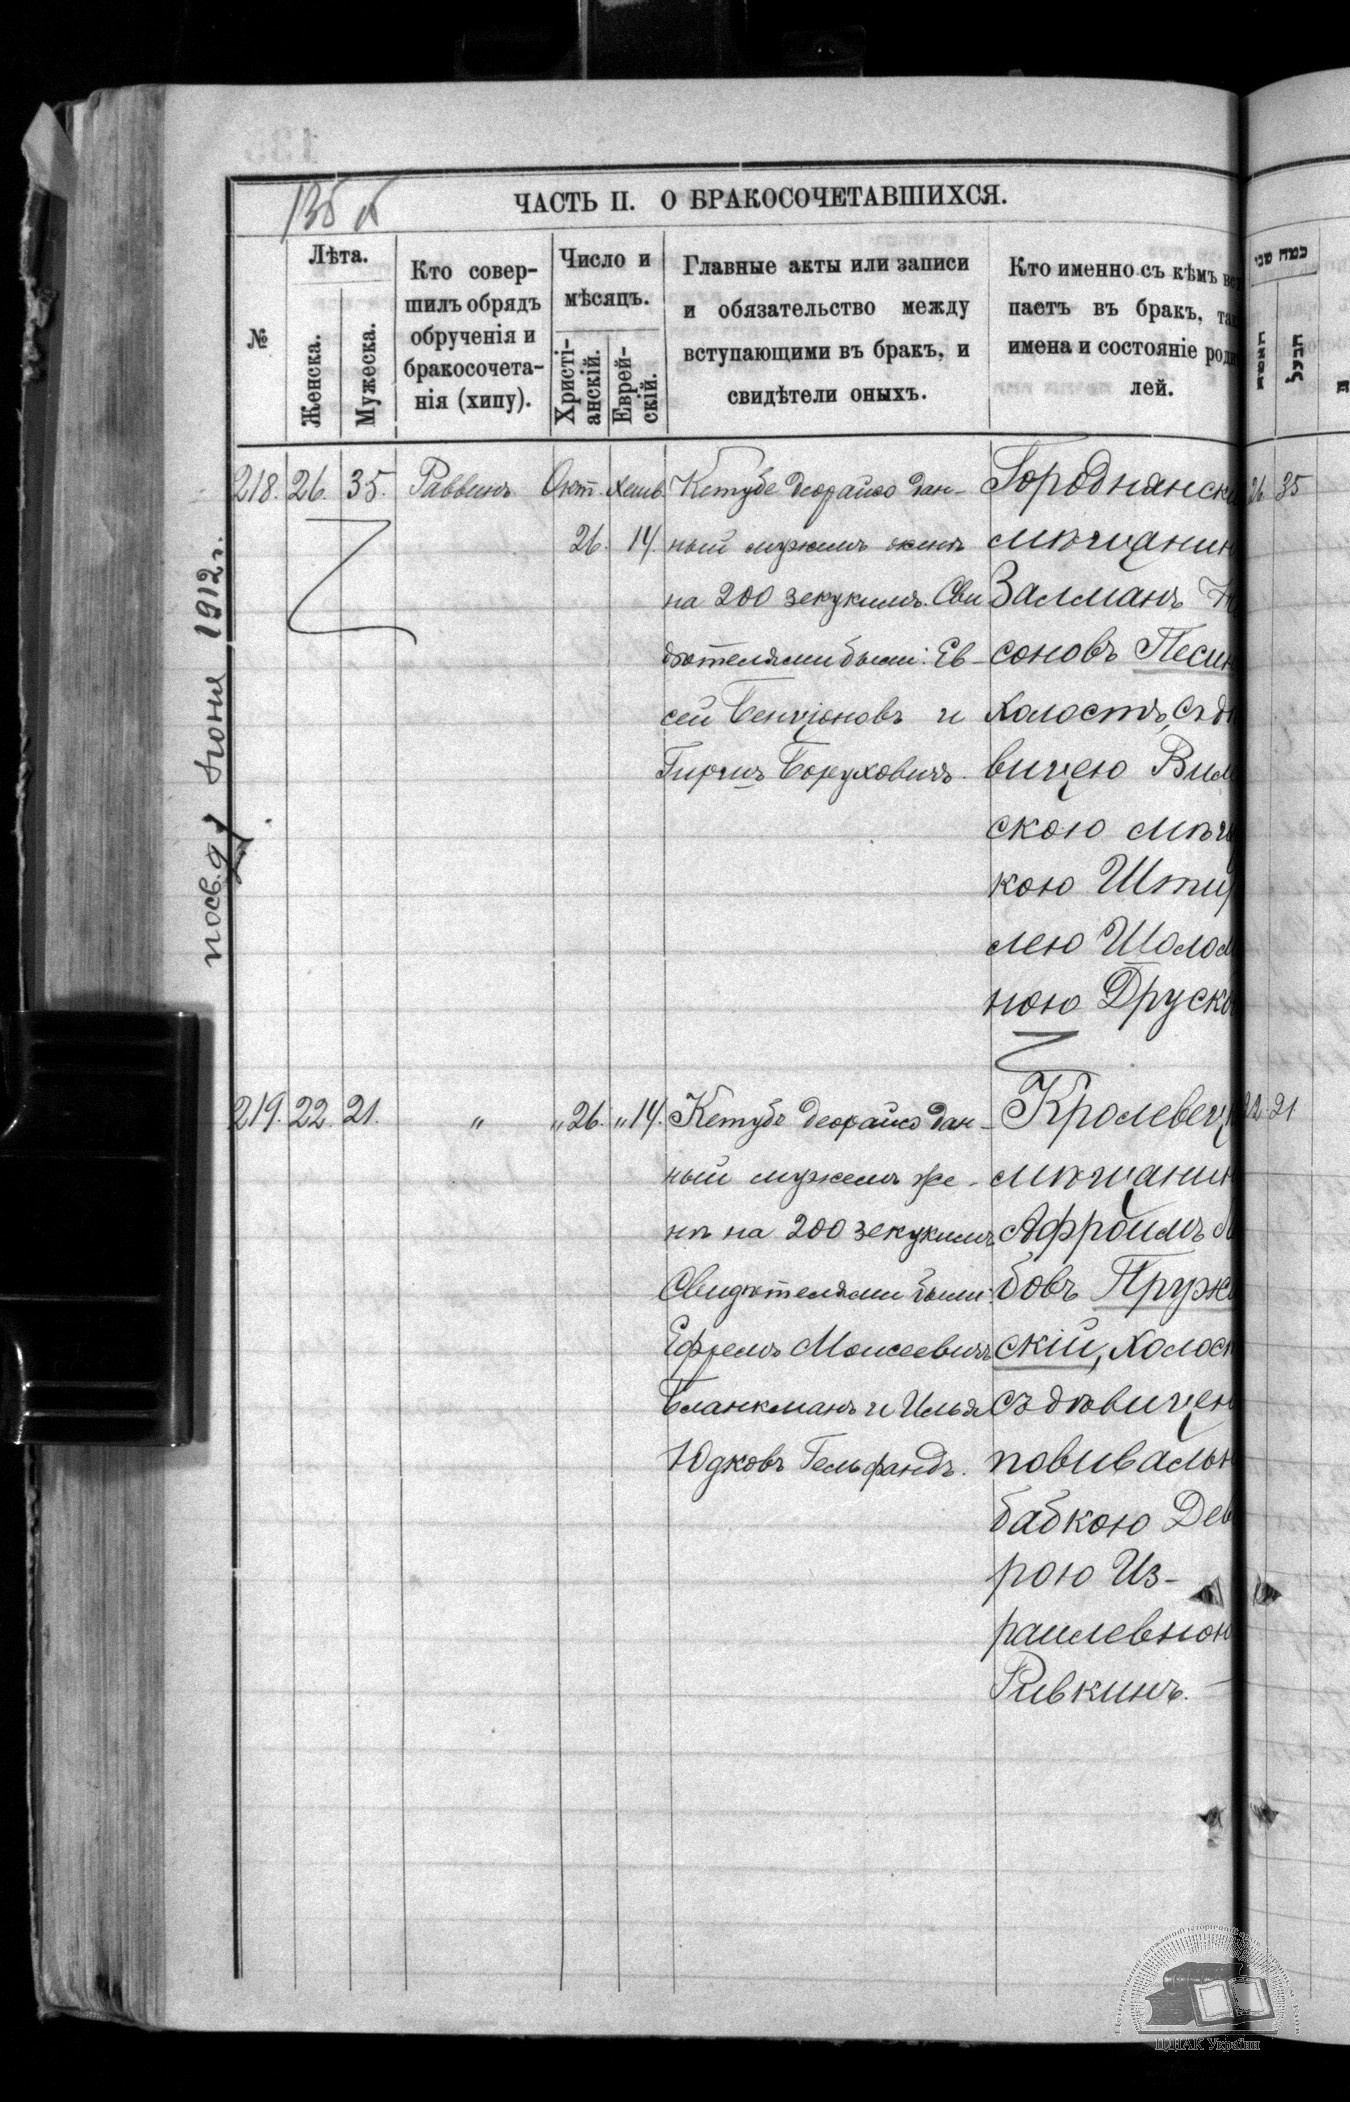 135
ЧАСТЬ II. О БРАКОСОЧЕТАВШИХСЯ.
№
Лѣта.
Женска.
Мужеска.
Кто совер-
шилъ обрядъ
обрученія и
бракосочета-
нія (хипу).
Число и
мѣсяцъ.
Христі-
анскій.
Еврей-
скій.
Главные акты или записи
и обязательство между
вступающими въ бракъ, и
свидѣтели оныхъ.
Кто именно съ кѣмъ вст
паетъ въ бракъ, так
имена и состояніе роди
лей.
כמה שני
האשה
הבעל
218. 26. 35. Раввинъ Окт. Хешв.
26. 14.
Кетубе деорайсо дан-
ный мужемъ женѣ
на 200 зекукимъ. Сви
дѣтелями были: Ев-
сей Бенціоновъ и
Гиршъ Боруховичъ.
Городнянск
мѣщанин
Залманъ
соновъ Песин
холостъ, съ дѣ
вицею Вил
скою мѣщ
кою
лею Шолом
ною Друск
26 35
посв. 9 Іюня 1912 г.
219. 22. 21. " " 26. " 14.
Кетубе деорайсо дан-
ный мужемъ же-
нѣ на 200 зекукимъ
Свидѣтелями были:
Ефремъ Моисеевичъ
Бланкманъ и Илья
Юдковъ Гельфандъ.
Кролевец
мѣщанин
Афроимъ
бовъ Пруж
скій, холост
съ дѣвицею
повивальн
бабкою Дев
рою Из-
раилевною
Ривкинъ.
22 21
ЦДІАК України